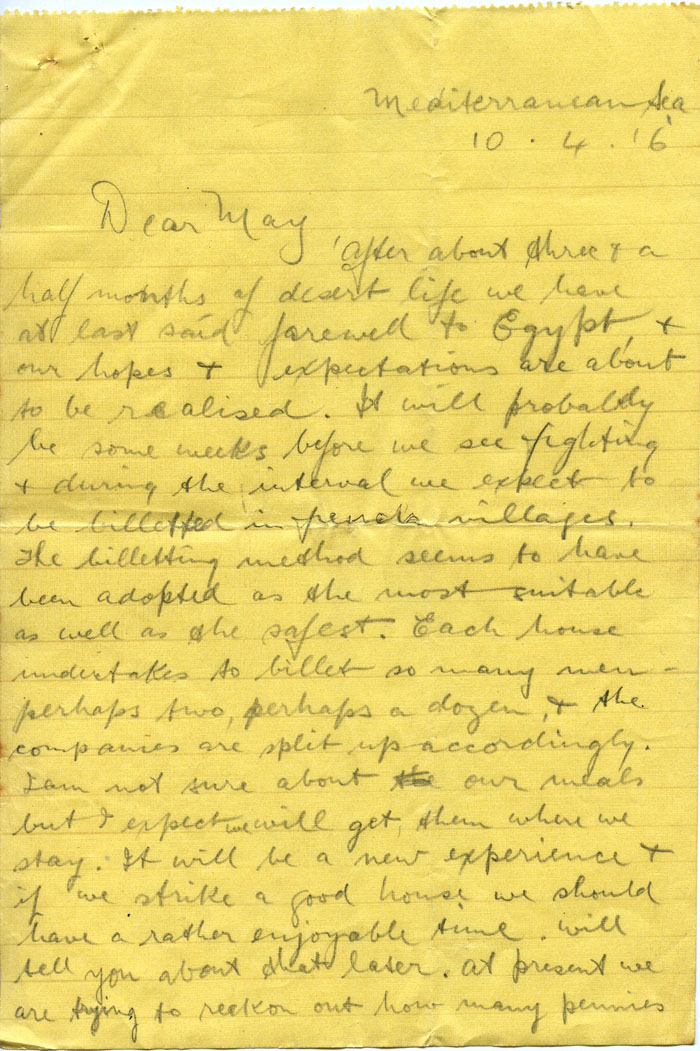 Mediterranean Sea
10 . 4 . '16
Dear May
After about three & a
half months of desert life we have
at last said farewell to Egypt, &
our hopes & expectations are about
to be realised. It will probably
be some weeks before we see fighting
& during the interval we expect to
be billetted in french villages.
The billetting method seems to have
been adopted as the most suitable
as well as the safest. Each house
undertakes to billet so many men -
perhaps two, perhaps a dozen, & the
companies are split up accordingly.
I am not sure about our meals
but I expect we will get them where we
stay. It will be a new experience &
if we strike a good house we should
have a rather enjoyable time. Will
tell you about that later. At present we
are trying to reckon out how many pennies